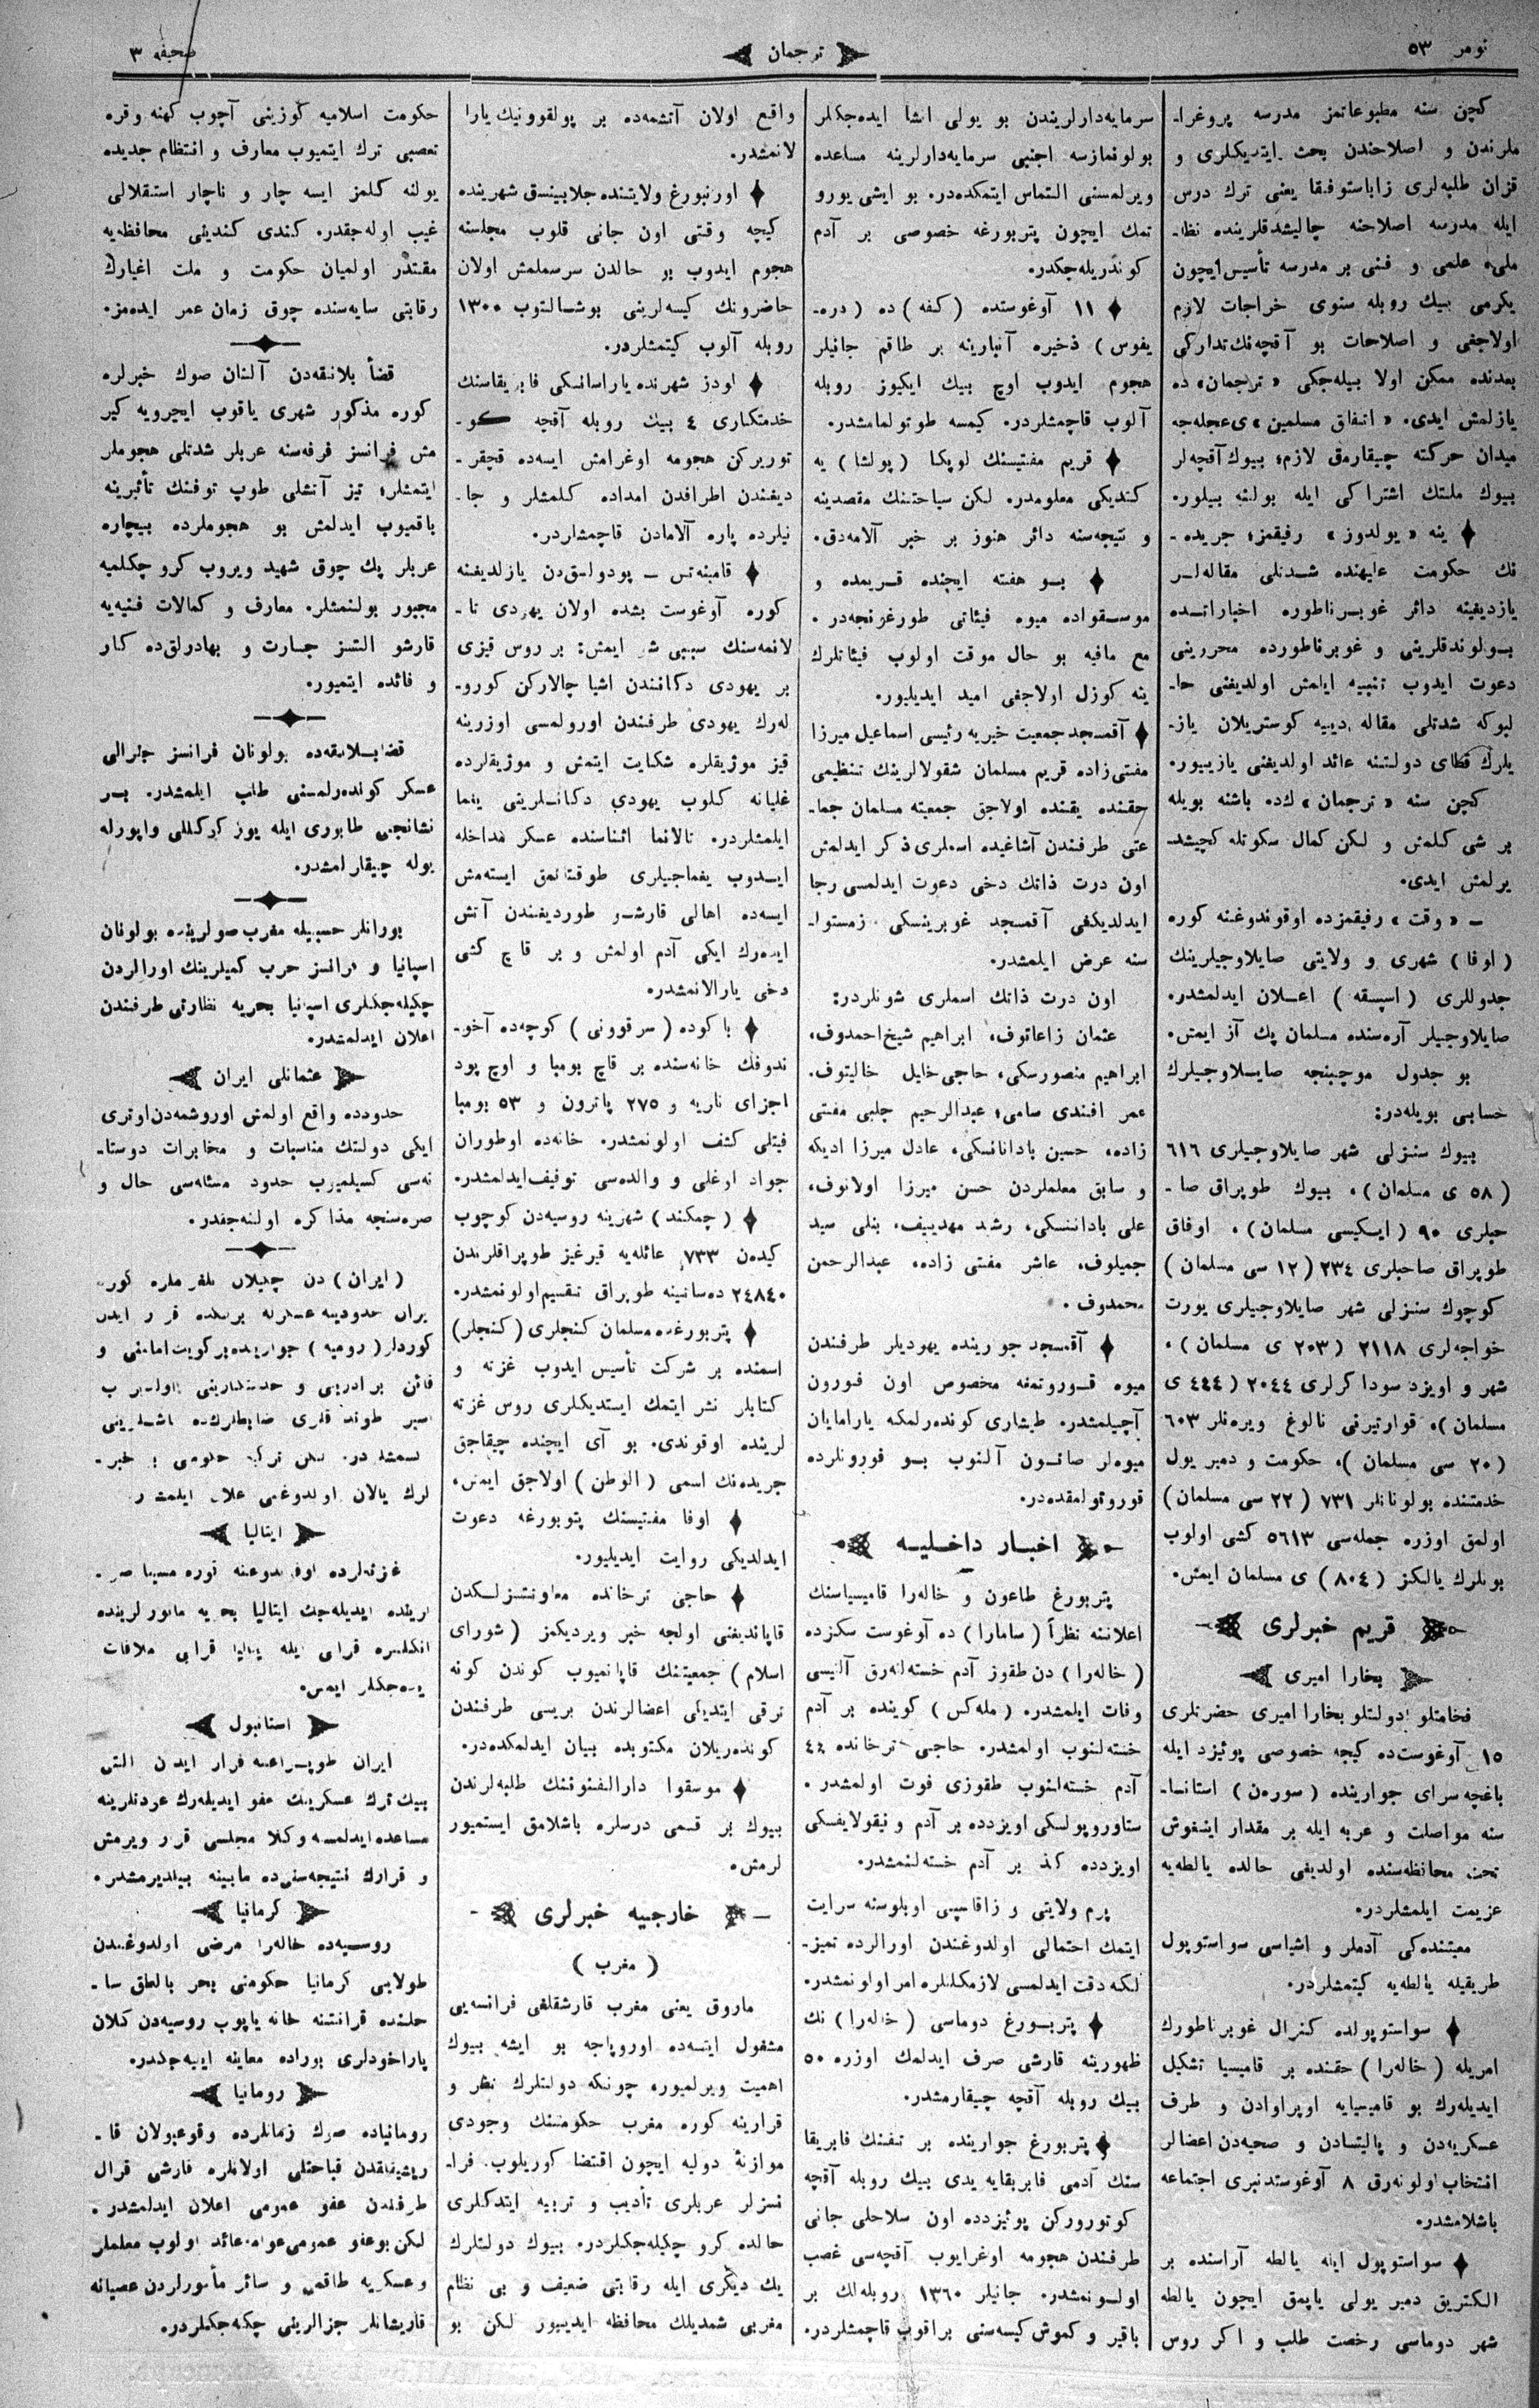 نومر ٥٣
ترجمان
صحیفه ٣
كچن سنه مطبوعاتمز مدرسه پروغرا-
ملرندن و اصلاحندن بحث ایتدیكلری و
قزان طلبه‌لری زاباستوفقا یعنی ترك درس
ایله مدرسه اصلاحنه چالیشدقلرینده نظا-
ملی، علمی و فنی بر مدرسه تأسیس ایچون
یكرمی بیك روبله سنوی خراجات لازم
اولاجغی و اصلاحات بو آقچه‌نك تداركی
بعدنده ممكن اولا بیله‌جكی «ترجمان» ده
یازلمش ایدی. «اتفاق مسلمین» ی عجله‌جه
میدان حركته چیقارمق لازم؛ بیوك آقچه‌لر
بیوك ملتك اشتراكی ایله بولنه بیلور.
ینه «یولدوز» رفیقمز؛ جریده-
نك حكومت علیهنده شدتلی مقاله‌لر
یازدیغینه دائر غوبرناطوره اخباراتده
بولوندقلرینی و غوبرناطورده محررینی
دعوت ایدوب تنبیه ایلمش اولدیغنی حا-
لبوكه شدتلی مقاله دیییه كوستریلان یاز-
یلرك قطای دولتنه عائد اولدیغنی یازییور.
كچن سنه «ترجمان» ك‌ده باشنه بویله
بر شی كلمش و لكن كمال سكوتله كچیشد-
یرلمش ایدی.
– «وقت» رفیقمزده اوقوندوغنه كوره
(اوفا) شهری و ولایتی صایلاوجیلرینك
جدوللری (اسپسقه) اعلان ایدلمشدر.
صایلاوجیلر آره‌سنده مسلمان پك آز ایمش.
بو جدول موجبنجه صایلاوجیلرك
حسابی بویله‌در:
بیوك سنزلی شهر صایلاوجیلری ٦١٦
(٥٨ ی مسلمان)، بیوك طوپراق صا-
حبلری ٩٠ (ایكیسی مسلمان)، اوفاق
طوپراق صاحبلری ٢٣٤ (١٢ سی مسلمان)
كوچوك سنزلی شهر صایلاوجیلری یورت
خواجه‌لری ٢١١٨ (٢٠٣ ی مسلمان)،
شهر و اویزد سوداكرلری ٢٠٤٤ (٤٤٤ ی
مسلمان)، قوارتیرنی نالوغ ویره‌نلر ٦٠٣
(٢٠ سی مسلمان)، حكومت و دمیر یول
خدمتنده بولونانلر ٧٣١ (٢٢ سی مسلمان)
اولمق اوزره جمله‌سی ٥٦١٣ كشی اولوب
بونلرك یالكز (٨٠٤) ی مسلمان ایمش.
قریم خبرلری
بخارا امیری
فخامتلو دولتلو بخارا امیری حضرتلری
١٥ آوغوست‌ده كیجه خصوصی پوئیزد ایله
باغچه سرای جوارینده (سورەن) استانسا-
سنه مواصلت و عربه ایله بر مقدار اینغوش
تحت محافظه‌سنده اولدیغی حالده یالطه‌یه
عزیمت ایلمشلردر.
معیتنده‌كی آدملر و اشیاسی سواستوپول
طریقیله یالطه‌یه كیتمشلردر.
سواستوپولده كنرال غوبرناطورك
امریله (خاله‌را) حقنده بر قامیسیا تشكیل
ایدیله‌رك بو قامیسیایه اوپراوادن و طرف
عسكریه‌دن و پالیتسادن و صحیه‌دن اعضالر
انتخاب اولونه‌رق ٨ آوغوستدنبری اجتماعه
باشلامشدر.
سواستوپول ایله یالطه آراسنده بر
الكتریق دمیر یولی یاپمق ایچون یالطه
شهر دوماسی رخصت طلب و اكر روس
سرمایه‌دارلریندن بو یولی انشا ایده‌جكلر
بولونمازسه اجنبی سرمایه‌دارلرینه مساعده
ویرلمسنی التماس ایتمكده‌در. بو ایشی یورو
تمك ایچون پتربورغه خصوصی بر آدم
كوندریله‌جكدر.
١١ آوغوستده (كفه) ده (دره-
یفوس) ذخیره آنبارینه بر طاقم جانیلر
هجوم ایدوب اوچ بیك ایكیوز روبله
آلوب قاچمشلردر. كیمسه طوتولمامشدر.
قریم مفتیسنك لوپكا (پولشا) یه
كتدیكی معلومدر. لكن سیاحتنك مقصدینه
و نتیجه‌سنه دائر هنوز بر خبر آلامه‌دق.
بو هفته ایچنده قریمده و
موسقواده میوه فیئاتی طورغونجه‌در.
مع مافیه بو حال موقت اولوب فیئاتلرك
ینه كوزل اولاجغی امید ایدیلیور.
آقمسجد جمعیت خیریه رئیسی اسماعیل میرزا
مفتی‌زاده قریم مسلمان شقولالرینك تنظیمی
حقنده یقنده اولاجق جمعیته مسلمان جما-
عتی طرفندن آشاغیده اسملری ذكر ایدلمش
اون درت ذاتك دخی دعوت ایدلمسی رجا
ایدلدیكنی آقمسجد غوبرینسكی زمستوا-
سنه عرض ایلمشدر.
اون درت ذاتك اسملری شونلردر:
عثمان زاعاتوف، ابراهیم شیخ‌احمدوف،
ابراهیم منصورسكی، حاجی خایل خالیتوف.
عمر افندی سامی؛ عبدالرحیم چلبی مفتی
زاده، حسین بادانانسكی، عادل میرزا ادیكه
و سابق معلملردن حسن میرزا اولانوف،
علی باداننسكی، رشد مهدییف، بنلی سید
جمیلوف، عاشر مفتی زاده، عبدالرحمن
محمدوف.
آقمسجد جورینده یهودیلر طرفندن
میوه قوروتمغه مخصوص اون فورون
آچیلمشدر. طیشاری كوندەرلمكه یارامایان
میوه‌لر صاتون آلنوب بو فورونلرده
قوروتولمقده‌در.
اخبار داخلیه
پتربورغ طاعون و خاله‌را قامیسیاسنك
اعلاننه نظراً (سامارا) ده آوغوست سكزده
(خاله‌را) دن طقوز آدم خسته‌لەنەرق آلتیسی
وفات ایلمشدر. (مله‌كس) كوینده بر آدم
خسته‌لنوب اولمشدر. حاجی ترخانده ٤٤
آدم خسته‌لنوب طقوزی فوت اولمشدر.
ستاوروپولسكی اویزدده بر آدم و نیقولایفسكی
اویزدده كذ بر آدم خسته‌لنمشدر.
پرم ولایتی و زاقاسپی اوبلوسته سرایت
ایتمك احتمالی اولدوغندن اورالرده تمیز-
لكه دقت ایدلمسی لازمكلنلره امر اولونمشدر.
پتربورغ دوماسی (خاله‌را) نك
ظهورینه قارشی صرف ایدلمك اوزره ٥٠
بیك روبله آقچه چیقارمشدر.
پتربورغ جوارینده بر تفنك فابریقا
سنك آدمی فابریقایه یدی بیك روبله آقچه
كوتورركن پوئیزدده اون سلاحلی جانی
طرفندن هجومه اوغرایوب آقچه‌سی غصب
اولونمشدر. جانیلر ١٣٦٠ روبله‌لك بر
باقیر و كموش كیسه‌سنی براقوب قاچمشلردر.
واقع اولان آتشمه‌ده بر پولقوونیك یارا
لانمشدر.
اورنبورغ ولایتنده چلابینسق شهرینده
كیچه وقتی اون جانی قلوب مجلسنه
هجوم ایدوب بو حالدن سرسملمش اولان
حاضرونك كیسه‌لرینی بوشالتوب ١٣٠٠
روبله آلوب كیتمشلردر.
لودز شهرنده یاراسانسكی فابریقاسنك
خدمتكاری ٤ بیك روبله آقچه كو-
توریركن هجومه اوغرامش ایسه‌ده قچقر-
دیغندن اطرافدن امداده كلمشلر و جا-
نیلرده پاره آلامادن قاچمشلردر.
قامینه‌تس – پودولسق‌دن یازلدیغنه
كوره آوغوست بشده اولان یهودی تا-
لانمه‌سنك سببی شو ایمش: بر روس قیزی
بر یهودی دكانندن اشیا چالاركن كورو-
له‌رك یهودی طرفندن اورولمسی اوزرینه
قیز موژیقلره شكایت ایتمش و موژیقلرده
غلیانه كلوب یهودی دكانلرینی یغما
ایلمشلردر. تالانما اثناسنده عسكر مداخله
ایدوب یغماجیلری طوقتاتمق ایستەمش
ایسه‌ده اهالی قارشو طوردیغندن آتش
ایدەرك ایكی آدم اولمش و بر قاچ كشی
دخی یارالانمشدر.
باكوده (سرقوونی) كوچه‌ده آخو-
ندوفك خانه‌سنده بر قاچ بومبا و اوچ پود
اجزای ناریه و ٢٧٥ پاترون و ٥٣ بومبا
فیتلی كشف اولونمشدر. خانه‌ده اوطوران
جواد اوغلی و والده‌سی توقیف ایدلمشدر.
(چمكند) شهرینه روسیه‌دن كوچوب
كیدەن ٧٣٣ عائله‌یه قیرغیز طوپراقلرندن
٢٤٨٤٠ ده‌سانینه طوپراق تقسیم اولونمشدر.
پتربورغده مسلمان كنجلری (كنجلر)
اسمنده بر شركت تأسیس ایدوب غزته و
كتابلر نشر ایتمك ایستدیكلری روس غزته
لرینده اوقوندی. بو آی ایچنده چیقاجق
جریده‌نك اسمی (الوطن) اولاجق ایمش.
اوفا مفتیسنك پتوبورغه دعوت
ایدلدیكی روایت ایدیلیور.
حاجی ترخانده معاونتسزلكدن
قاپاندیغنی اولجه خبر ویردیكمز (شورای
اسلام) جمعیتنك قاپانمیوب كوندن كونه
ترقی ایتدیكی اعضالرندن بریسی طرفندن
كوندەریلان مكتوبده بیان ایدلمكده‌در.
موسقوا دارالفنوننك طلبه‌لرندن
بیوك بر قسمی درسلره باشلامق ایستمیور
لرمش.
خارجیه خبرلری
(مغرب)
ماروق یعنی مغرب قارشقلغی فرانسه‌یی
مشغول ایتسه‌ده اوروپاجه بو ایشه بیوك
اهمیت ویرلمیور، چونكه دولتلرك نظر و
قرارینه كوره مغرب حكومتنك وجودی
موازنهٔ دولیه ایچون اقتضا كوریلوب. فرا-
نسزلر عربلری تأدیب و تربیه ایتدكلری
حالده كرو چكیله‌جكلردر. بیوك دولتلرك
یك دیگری ایله رقابتی ضعیف و بی نظام
مغربی شمدیلك محافظه ایدییور لكن بو
حكومت اسلامیه كوزینی آچوب كهنه وقره
تعصبی ترك ایتمیوب معارف و انتظام جدیده
یولنه كلمز ایسه چار و ناچار استقلالی
غیب اوله‌جقدر. كندی كندینی محافظه‌یه
مقتدر اولمیان حكومت و ملت اغیارك
رقابتی سایه‌سنده چوق زمان عمر ایده‌مز.
قضأ بلانقه‌دن آلنان صوك خبرلره
كوره مذكور شهری یاقوب ایچرویه كیر
مش فرانسز فرقه‌سنه عربلر شدتلی هجوملر
ایتمشلر؛ تیز آتشلی طوپ توفنك تأثیرینه
باقمیوب ایدلمش بو هجوملرده بیچاره
عربلر پك چوق شهید ویروب كرو چكلمیه
مجبور بولنمشلر. معارف و كمالات فنیه‌یه
قارشو التسز جسارت و بهادرلق‌ده كار
و فائده ایتمیور.
قضابلانقه‌ده بولونان فرانسز جنرالی
عسكر كوندەرلمسنی طلب ایلمشدر. بر
نشانجی طابوری ایله یوز كوكللی واپورله
یوله چیقارلمشدر.
بورانلر حسبیله مغرب صولرینده بولونان
اسپانیا و فرانسز حرب كمیلرینك اورالردن
چكیله‌جكلری اسپانیا بحریه نظارتی طرفندن
اعلان ایدلمشدر.
عثمانلی ایران
حدودده واقع اولمش اوروشمه‌دن اوتری
ایكی دولتك مناسبات و مخابرات دوستا-
نه‌سی كسیلمیوب حدود مسئله‌سی حال و
صره‌سنجه مذاكره اولنه‌جقدر.
(ایران) دن چكیلان تلغرافلره كوره
ایران حدودینه عسكرله برلكده قرار ایدن
كوردلر (رومیه) جوارینده بر كویت امامنی و
لرك یالان اولدوغنی
ایتالیا
اریلده ایدیله‌جك ایتالیا بحریه مانورلرینده
انكلتره قرالی ایله ایتالیا قرالی ملاقات
ایده‌جكلر ایمش.
استانبول
ایران طوپراغنه فرار ایدن التی
بیك ترك عسكرینك عفو ایدیله‌رك عودتلرینه
مساعده ایدلمسنه وكلا مجلسی قرار ویرمش
و قرارك نتیجه‌سنی‌ده مابینه بیلدیرمشدر.
كرمانیا
روسیه‌ده خاله‌را مرضی اولدوغندن
طولایی كرمانیا حكومتی بحر بالطق سا-
حلنده قرانتینه خانه یاپوب روسیه‌دن كلان
پاراخودلری بوراده معاینه ایدیه‌جكدر.
رومانیا
رومانیاده صوك زمانلرده وقوعبولان قا-
ریشیقلقدن قباحتلی اولانلره قارشی قرال
طرفندن عفو عمومی اعلان ایدلمشدر.
لكن بو عفو عمومی عوامه عائد اولوب معلملر
و عسكریه طاقمی و سائر مأمورلردن عصیانه
قاریشانلر جزالرینی چكه‌جكلردر.